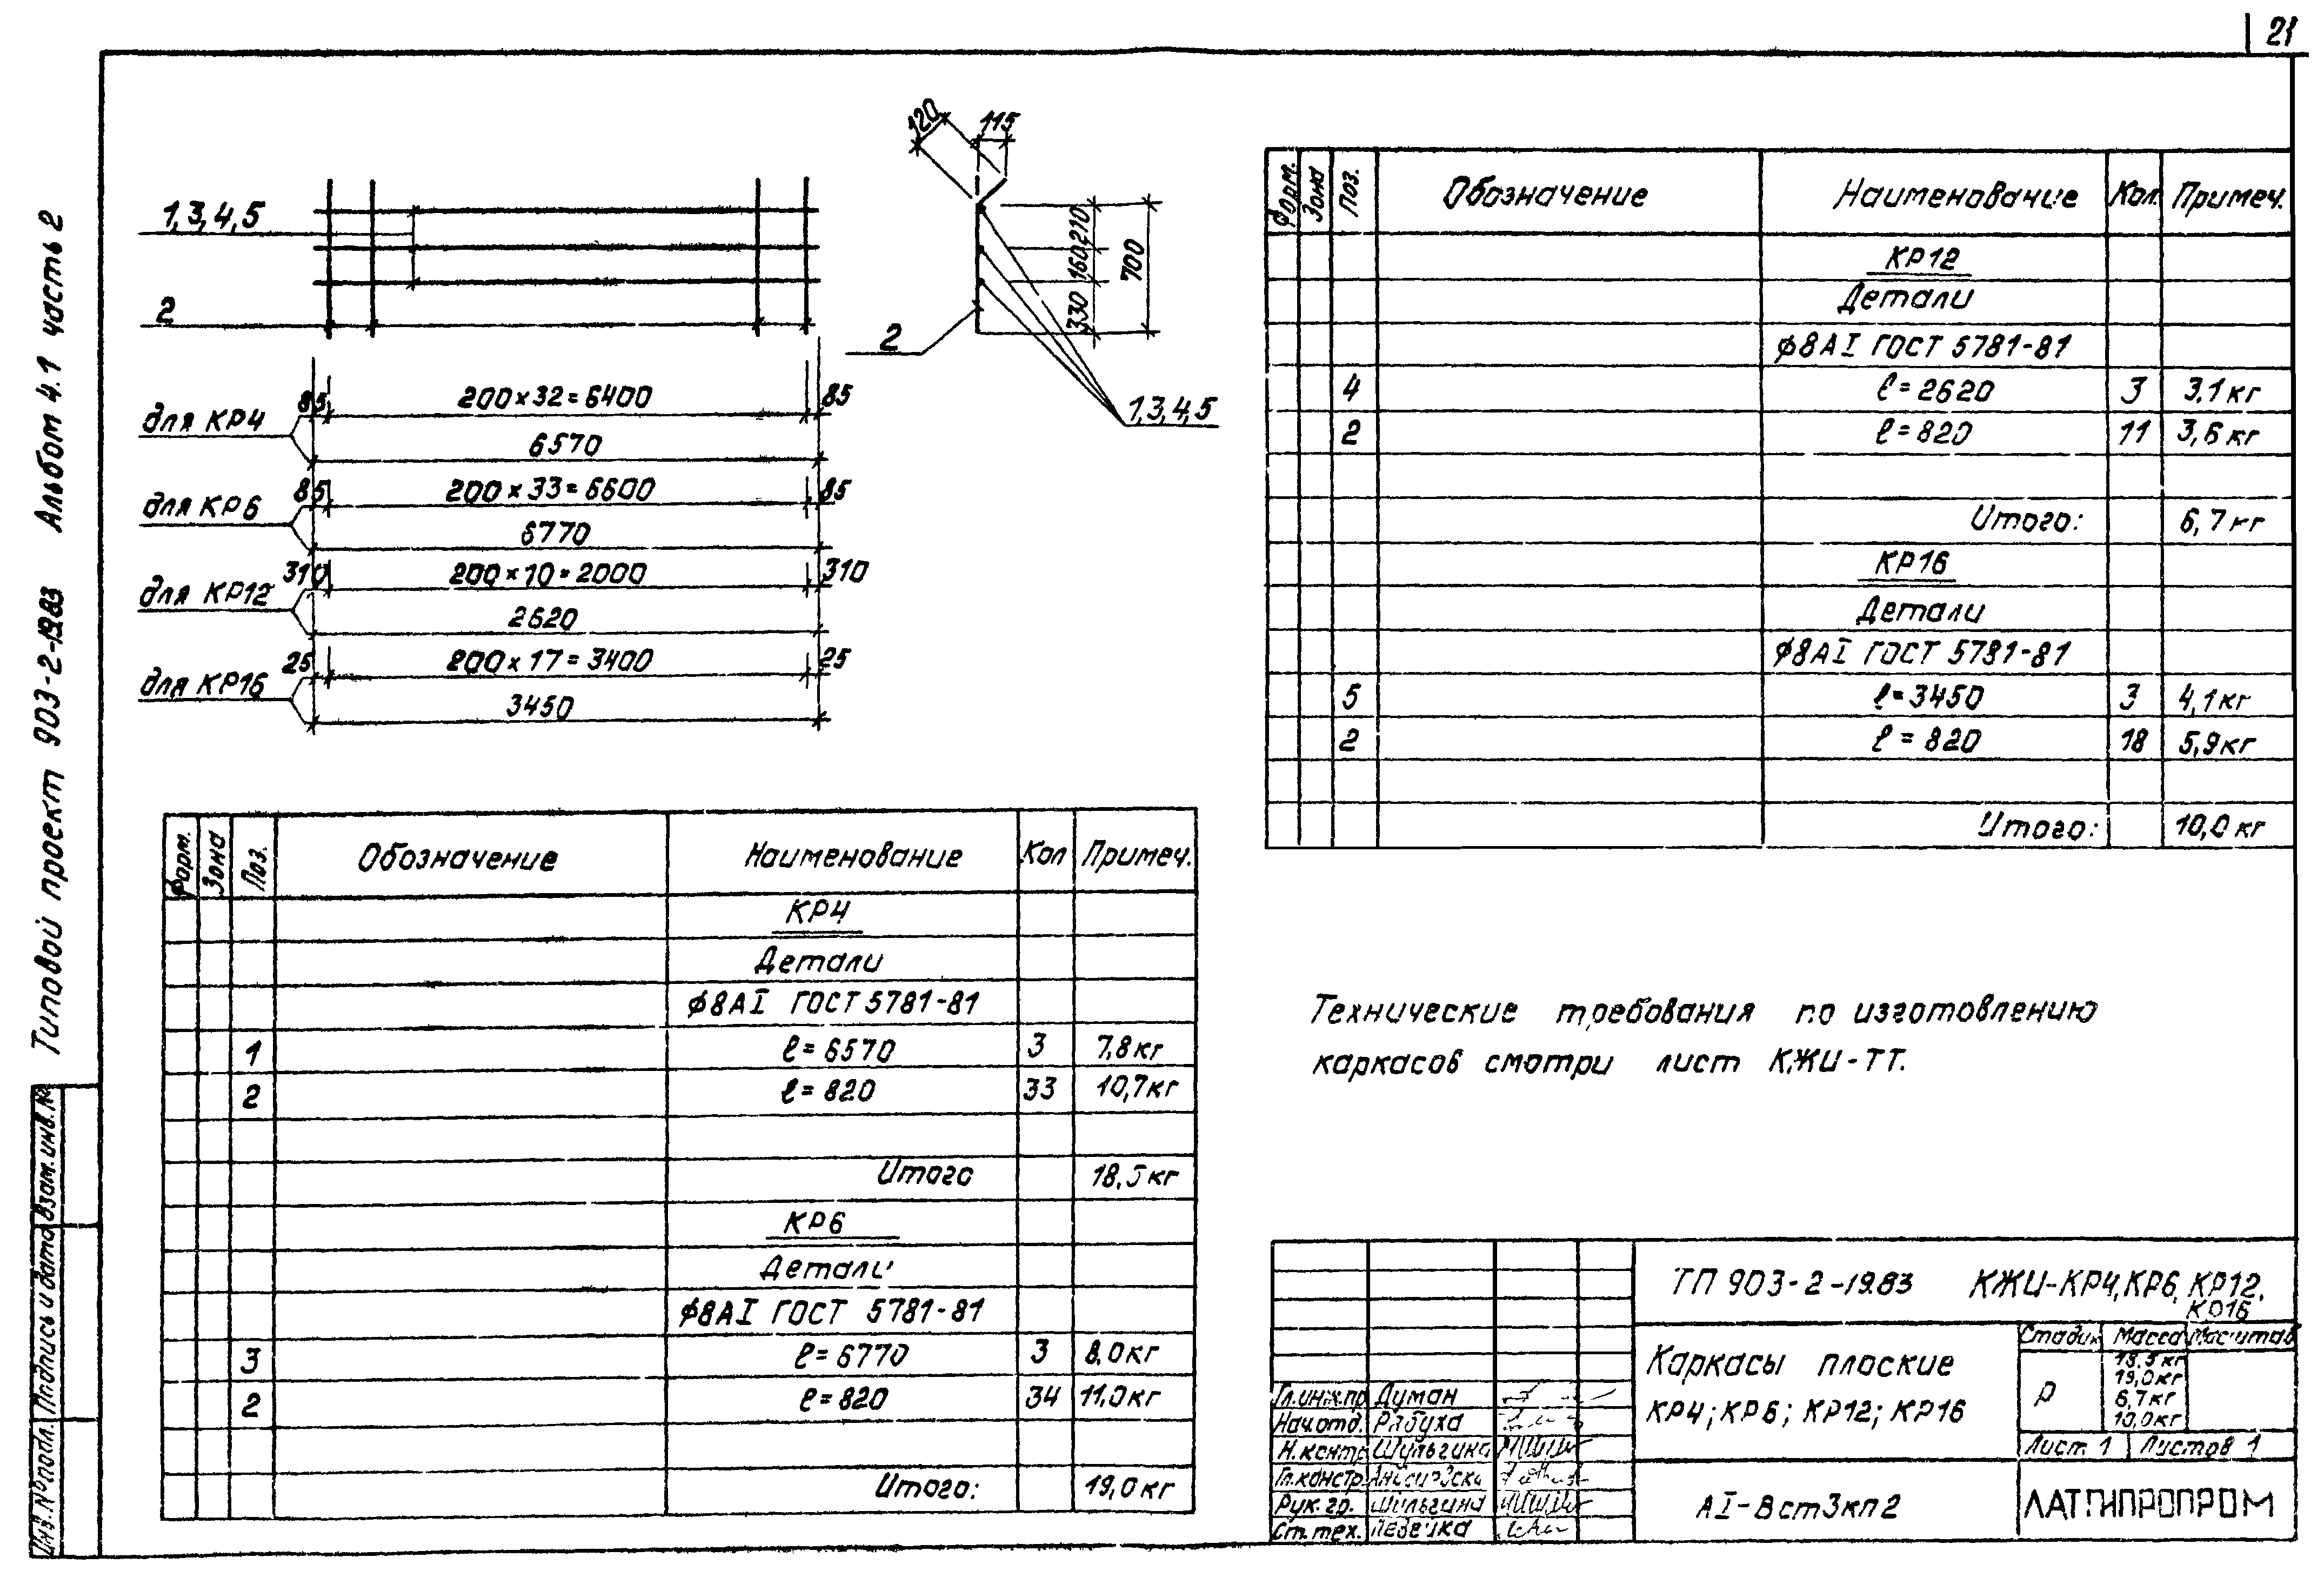 21
Типовой проект 903-2-19.83 Альбом 4.1 часть 2
Инв.№подл. Подпись и дата Взам.инв.№
1,3,4,5
2
120
115
210
160
330
700
2
1,3,4,5
для КР4
85
200×32=6400
85
6570
для КР6
85
200×33=6600
85
6770
для КР12
310
200×10=2000
310
2620
для КР16
25
200×17=3400
25
3450
Форм. Зона Поз. Обозначение Наименование Кол Примеч.
КР4
Детали
ϕ8АI ГОСТ 5781-81
1 ℓ=6570 3 7,8кг
2 ℓ=820 33 10,7кг
Итого 18,5кг
КР6
Детали
ϕ8АI ГОСТ 5781-81
3 ℓ=6770 3 8,0кг
2 ℓ=820 34 11,0кг
Итого: 19,0кг
Форм. Зона Поз. Обозначение Наименование Кол. Примеч.
КР12
Детали
ϕ8АI ГОСТ 5781-81
4 ℓ=2620 3 3,1кг
2 ℓ=820 11 3,6кг
Итого: 6,7кг
КР16
Детали
ϕ8АI ГОСТ 5781-81
5 ℓ=3450 3 4,1кг
2 ℓ=820 18 5,9кг
Итого: 10,0кг
Технические требования по изготовлению
каркасов смотри лист КЖИ-ТТ.
ТП 903-2-19.83 КЖИ-КР4,КР6,КР12,
КР16
Каркасы плоские
КР4; КР6; КР12; КР16
Стадия Масса Масштаб
Р
18,5кг
19,0кг
6,7кг
10,0кг
Лист 1 Листов 1
Гл.инж.пр Думан
Нач.отд. Рябуха
Н.контр Шульгина
Гл.констр
Рук.гр. Шульгина
Ст.тех.
АI-Вст3кп2
ЛАТГИПРОПРОМ